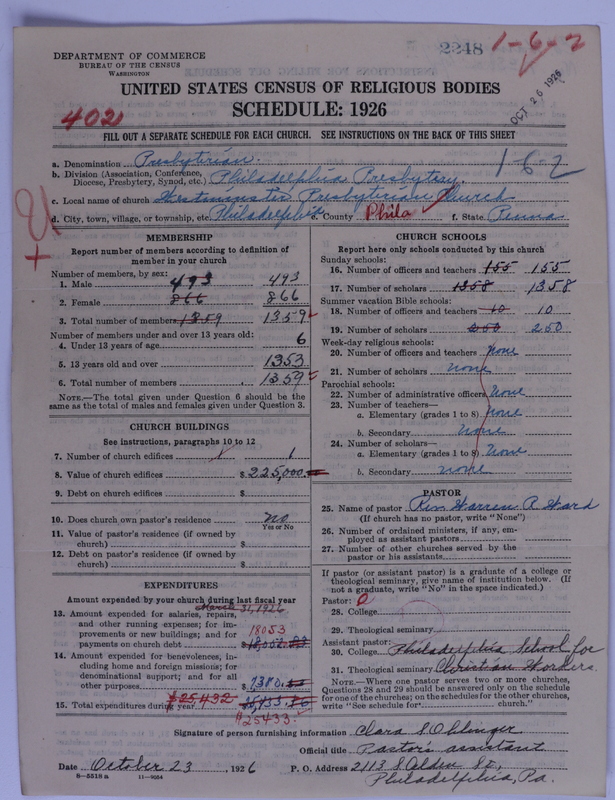 DEPARTMENT OF COMMERCE
BUREAU OF THE CENSUS
WASHINGTON
2248 1-6-2
OCT 26 1926
UNITED STATES CENSUS OF RELIGIOUS BODIES
SCHEDULE: 1926
402
FILL OUT A SEPARATE SCHEDULE FOR EACH CHURCH. SEE INSTRUCTIONS ON THE BACK OF THIS SHEET
a. Denomination Presbyterian.
1-6-2
b. Division (Association, Conference, Diocese, Presbytery, Synod, etc.) Philadelphia Presbytery.
c. Local name of church Westminster Presbyterian Church
d. City, town, village, or township, etc. Philadelphia e. County Phila f. State Penna
MEMBERSHIP
Report number of members according to definition of member in your church
Number of members, by sex:
1. Male 493 493
2. Female 866 866
3. Total number of members 1359 1359
Number of members under and over 13 years old:
4. Under 13 years of age 6
5. 13 years old and over 1353
6. Total number of members 1359
NOTE.—The total given under Question 6 should be the same as the total of males and females given under Question 3.
CHURCH BUILDINGS
See instructions, paragraphs 10 to 12
7. Number of church edifices 1
8. Value of church edifices $ 225,000.
9. Debt on church edifices $
10. Does church own pastor's residence No
Yes or No
11. Value of pastor's residence (if owned by church) $
12. Debt on pastor's residence (if owned by church) $
EXPENDITURES
Amount expended by your church during last fiscal year
March 31, 1926
13. Amount expended for salaries, repairs, and other running expenses; for improvements or new buildings; and for payments on church debt
18053
14. Amount expended for benevolences, including home and foreign missions; for denominational support; and for all other purposes $ 7380.
15. Total expenditures during year $25,432
$25433.
CHURCH SCHOOLS
Report here only schools conducted by this church
Sunday schools:
16. Number of officers and teachers 155 155
17. Number of scholars 1358 1358
Summer vacation Bible schools:
18. Number of officers and teachers 10 10
19. Number of scholars 250 250
Week-day religious schools:
20. Number of officers and teachers none
21. Number of scholars none
Parochial schools:
22. Number of administrative officers none
23. Number of teachers—
a. Elementary (grades 1 to 8) none
b. Secondary none
24. Number of scholars—
a. Elementary (grades 1 to 8) none
b. Secondary none
PASTOR
25. Name of pastor Rev. Warren R Ward
(If church has no pastor, write "None")
26. Number of ordained ministers, if any, employed as assistant pastors
27. Number of other churches served by the pastor or his assistants
If pastor (or assistant pastor) is a graduate of a college or theological seminary, give name of institution below. (If not a graduate, write "No" in the space indicated.)
Pastor: 0
28. College
29. Theological seminary
Assistant pastor:
30. College Philadelphia School for
31. Theological seminary Christian Workers.
NOTE.—Where one pastor serves two or more churches, Questions 28 and 29 should be answered only on the schedule for one of the churches; on the schedules for the other churches, write "See schedule for church."
Signature of person furnishing information Clara S Ohlinger
Official title Pastor's assistant
Date October 23, 1926 P. O. Address 2113 S Alden St,
8—5518 a 11—9054 Philadelphia, Pa.